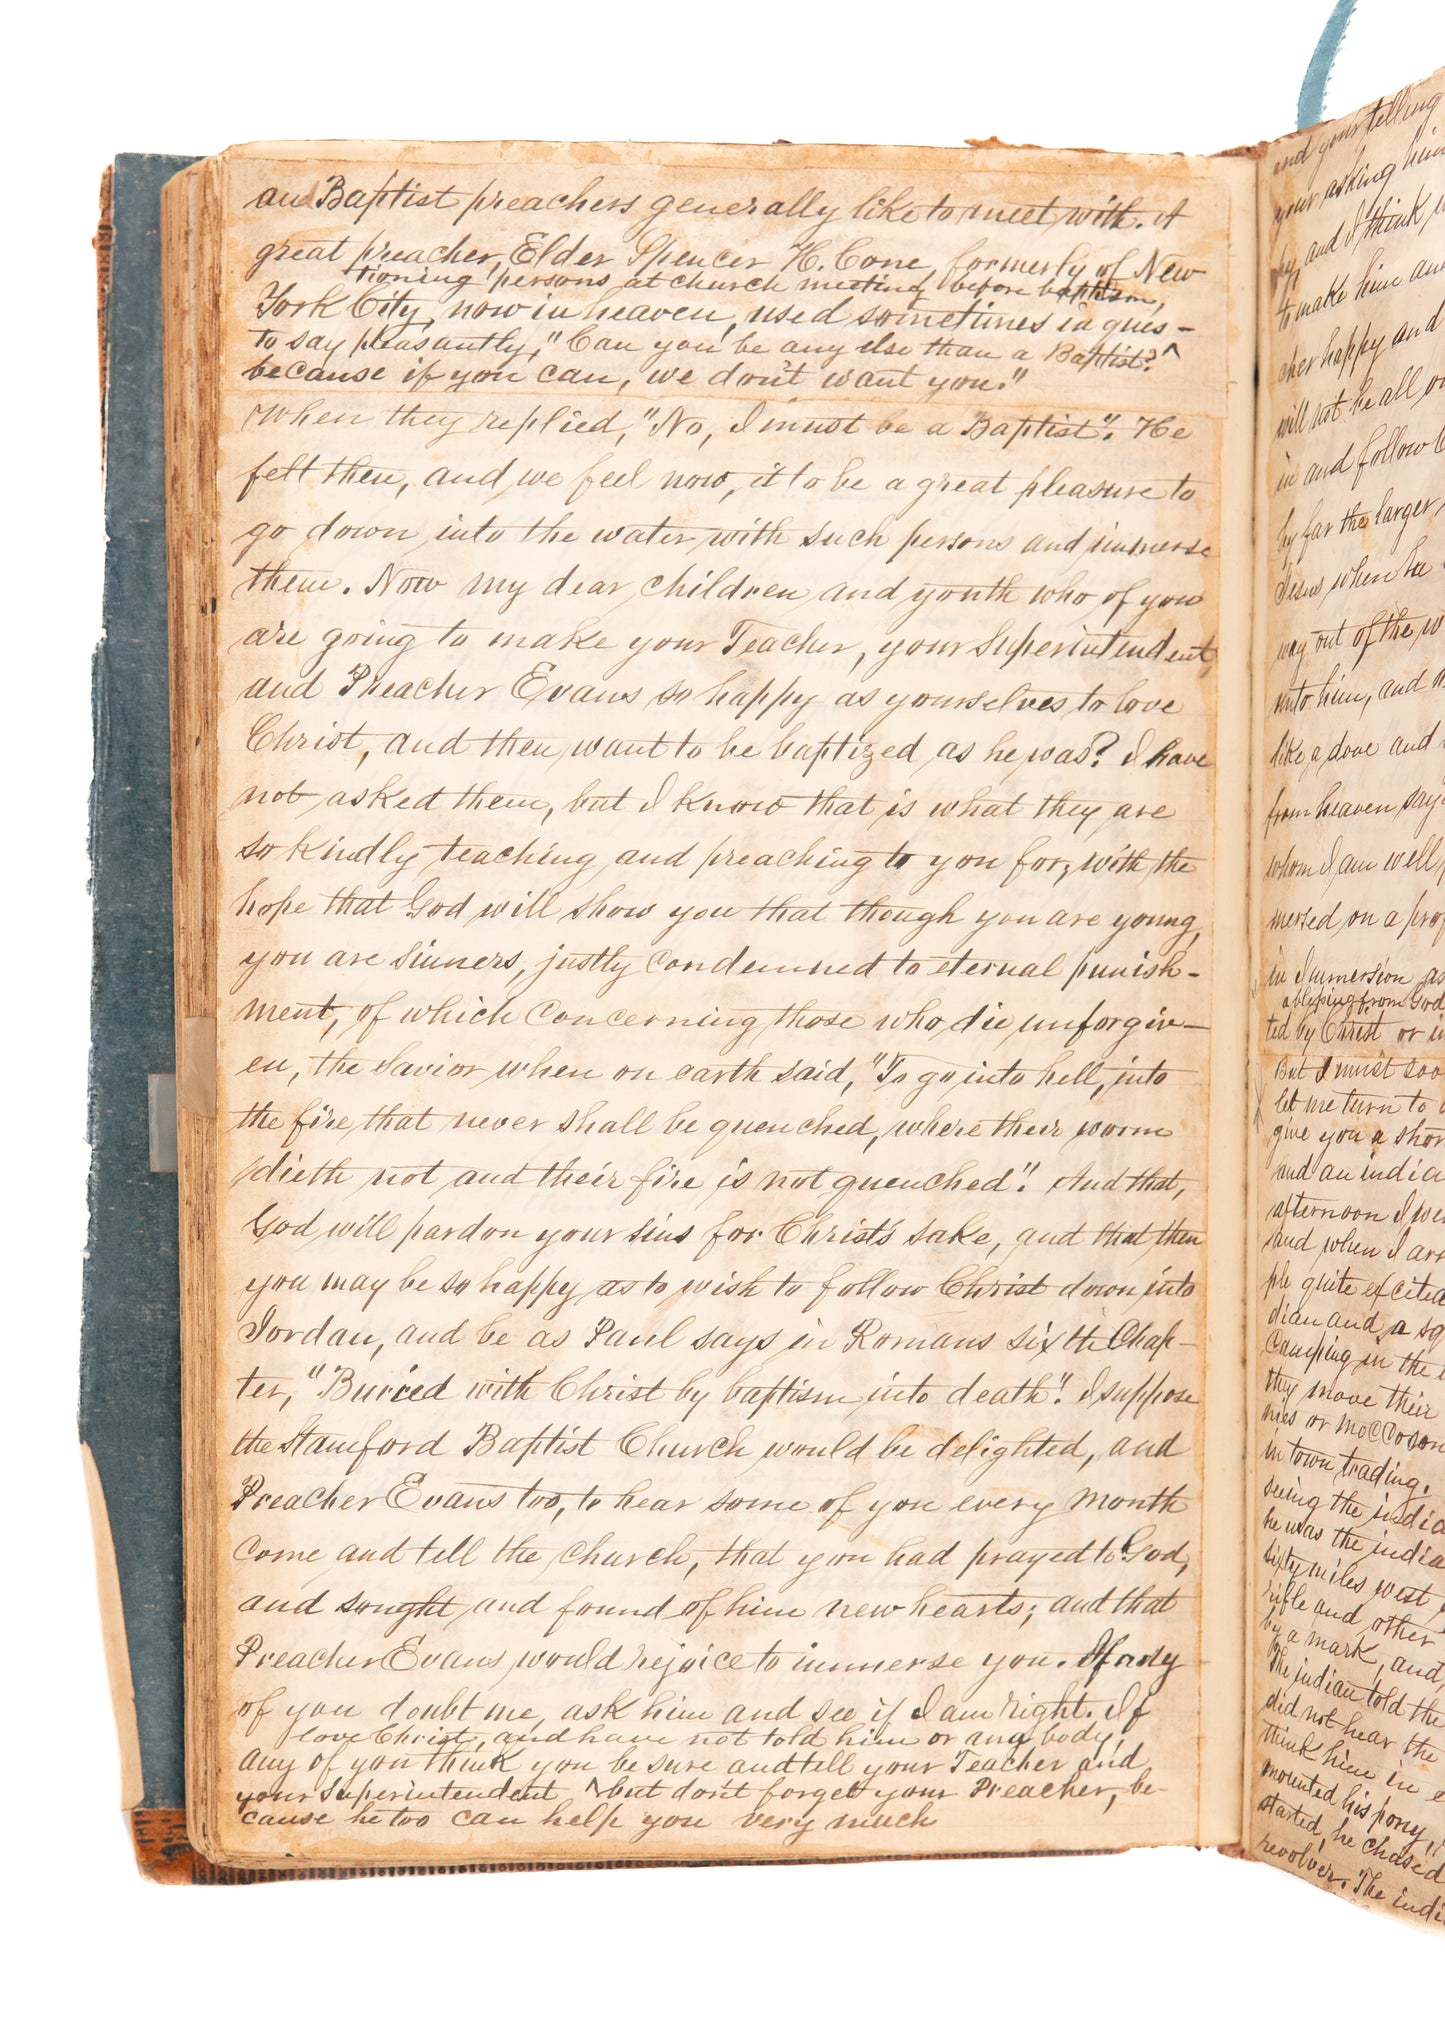 and Baptist preachers generally like to meet with. A
great preacher, Elder Spencer H. Cone, formerly of New
tioning persons at church meeting before baptism,
York City, now in heaven, used sometimes in ques-
to say pleasantly, "Can you be any else than a Baptist? ^
because if you can, we don't want you."
When they replied, "No, I must be a Baptist". He
felt then, and we feel now, it to be a great pleasure to
go down into the water with such persons and immerse
them. Now my dear children and youth who of you
are going to make your Teacher, your Superintendent,
and Preacher Evans so happy as yourselves to love
Christ, and then want to be baptized as he was? I have
not asked them, but I know that is what they are
so kindly teaching and preaching to you for, with the
hope that God will show you that though you are young,
you are sinners, justly condemned to eternal punish-
ment, of which concerning those who die unforgiv-
en, the Savior when on earth said, "To go into hell, into
the fire that never shall be quenched, where their worm
dieth not and their fire is not quenched". And that,
God will pardon your sins for Christ's sake, and that then
you may be so happy as to wish to follow Christ down into
Jordan, and be as Paul says in Romans sixth Chap-
ter, "Buried with Christ by baptism into death". I suppose
the Stamford Baptist Church would be delighted, and
Preacher Evans too, to hear some of you every month
come and tell the church, that you had prayed to God,
and sought and found of him new hearts; and that
Preacher Evans would rejoice to immerse you. If any
of you doubt me, ask him and see if I am right. If
love Christ, and have not told him or any body,
any of you think you be sure and tell your Teacher and
your Superintendent ^ but don't forget your Preacher, be-
cause he too can help you very much
and your telling
your asking him
by, and I think
to make him and
cher happy and
will not be all
in and follow
by far the larger,
Jesus when he
way out of the
unto him, and
like a dove and
from heaven say
whom I am well
mersed on a
in Immersion as
from God
ted by Christ or
But I must
let me turn to
give you a
and an
afternoon I
and when I
ple quite excited
dian and a
camping in the
they move their
or moccoson
in town trading.
seeing the
he was the
sixty miles west
rifle and other
by a mark, and
The indian told the
did not hear the
think him in
mounted his pony,
started, he chased
revolver. The